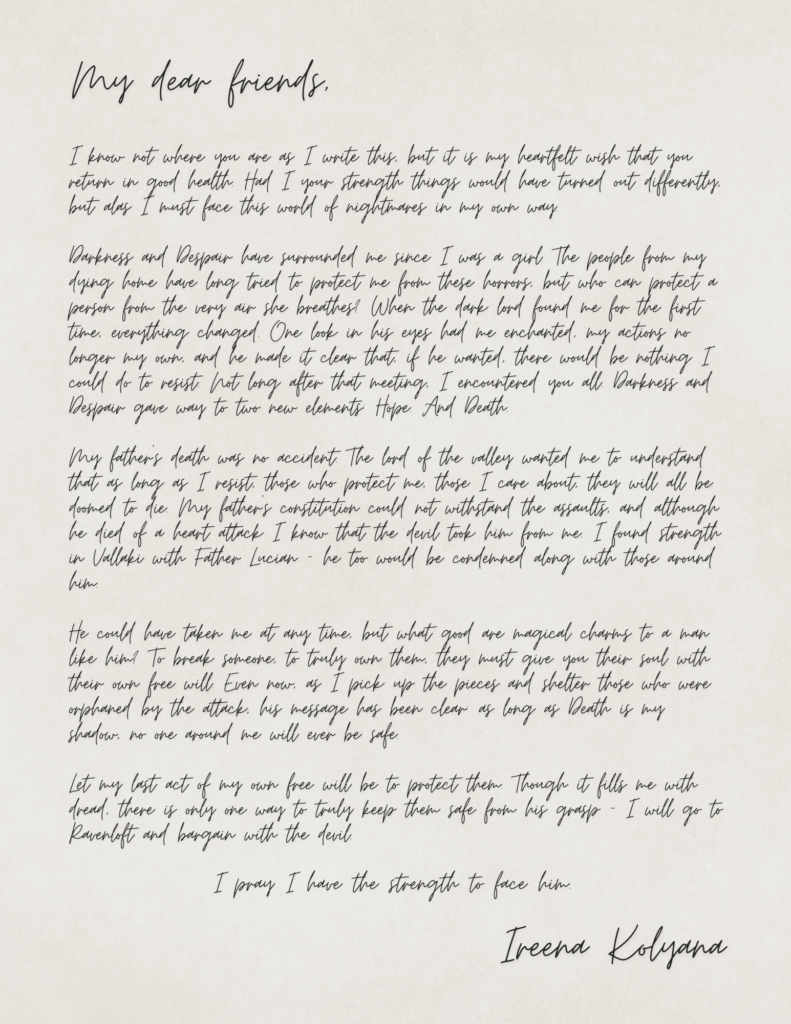 My dear friends,
I know not where you are as I write this, but it is my heartfelt wish that you
return in good health. Had I your strength things would have turned out differently,
but alas I must face this world of nightmares in my own way.
Darkness and Despair have surrounded me since I was a girl. The people from my
dying home have long tried to protect me from these horrors, but who can protect a
person from the very air she breathes? When the dark lord found me for the first
time, everything changed. One look in his eyes had me enchanted, my actions no
longer my own, and he made it clear that, if he wanted, there would be nothing I
could do to resist. Not long after that meeting, I encountered you all. Darkness and
Despair gave way to two new elements. Hope. And Death.
My father's death was no accident. The lord of the valley wanted me to understand
that as long as I resist, those who protect me, those I care about, they will all be
doomed to die. My father's constitution could not withstand the assaults, and although
he died of a heart attack I know that the devil took him from me. I found strength
in Vallaki with Father Lucian - he too would be condemned along with those around
him.
He could have taken me at any time, but what good are magical charms to a man
like him? To break someone, to truly own them, they must give you their soul with
their own free will. Even now, as I pick up the pieces and shelter those who were
orphaned by the attack, his message has been clear: as long as Death is my
shadow, no one around me will ever be safe.
Let my last act of my own free will be to protect them. Though it fills me with
dread, there is only one way to truly keep them safe from his grasp - I will go to
Ravenloft and bargain with the devil.
I pray I have the strength to face him.
Ireena Kolyana